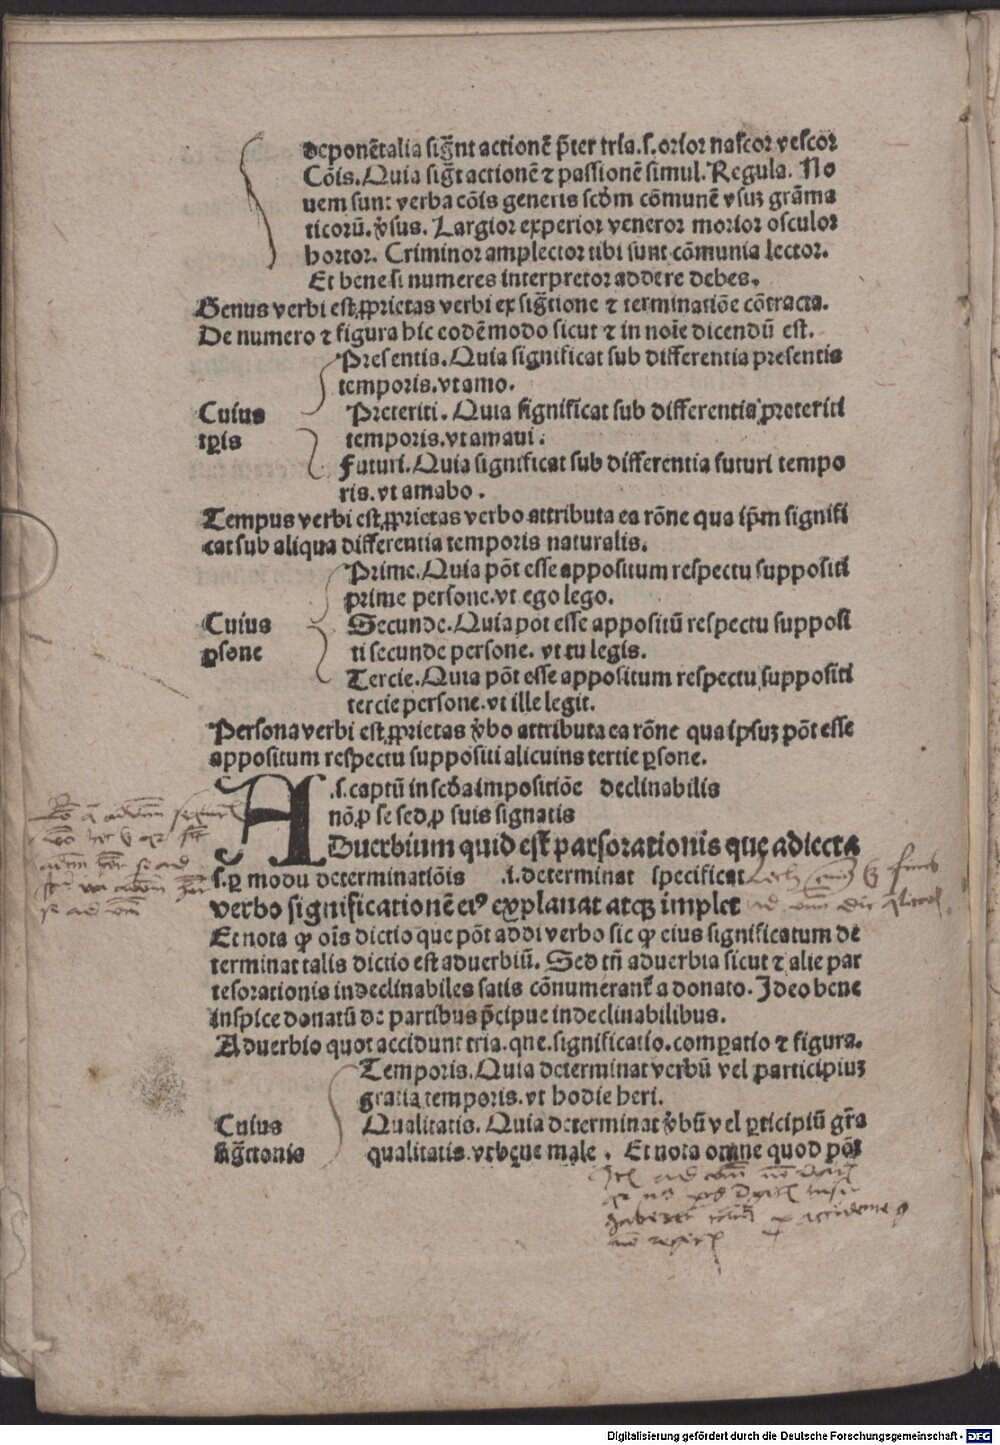 deponētalia sig̃nt actionē p̃ter tria.s.orior nascor vescor
Cōis.Quia sig̃t actionē ⁊ passionē simul.Regula. No
uem sunt verba cōis generis scd̓m cōmunē vsuꝫ grãma
ticorū.v̓sus. Largior experior veneror morior osculor
hortor. Criminor amplector tibi sunt cōmunia lector.
Et bene si numeres interpretor addere debes.
Genus verbi est ꝓprietas verbi ex sig̃tione ⁊ terminatiōe cōtracta.
De numero ⁊ figura hic eodē modo sicut ⁊ in noīe dicendū est.
Presentis.Quia significat sub differentia presentis
temporis.vt amo.
Cuius
tꝑis
Preteriti. Quia significat sub differentia preteriti
temporis.vt amaui.
Futuri.Quia significat sub differentia futuri tempo
ris.vt amabo.
Tempus verbi est ꝓprietas verbo attributa ea rōne qua ip̄m signifi
cat sub aliqua differentia temporis naturalis.
Prime.Quia pōt esse appositum respectu suppositi
prime persone.vt ego lego.
Cuius
ꝑsone
Secunde.Quia pōt esse appositū respectu supposi
ti secunde persone. vt tu legis.
Tercie.Quia pōt esse appositum respectu suppositi
tercie persone.vt ille legit.
Persona verbi est ꝓprietas v̓bo attributa ea rōne qua ipsuꝫ pōt esse
appositum respectu suppositi alicuius tertie ꝑsone.
.s.captū in scd̓a impositiōe declinabilis
nō ꝑ se sed ꝑ suis signatis
ADuerbium quid est parsorationis que adiecta
s.ꝑ modū determinatiōis .i.determinat specificat
verbo significationē eiꝰ explanat atqꝫ implet
Et nota ꝙ oīs dictio que pōt addi verbo sic ꝙ eius significatum de
terminat talis dictio est aduerbiū. Sed tñ aduerbia sicut ⁊ alie par
tesorationis indeclinabiles satis cōnumerant̃ a donato. Ideo bene
inspice donatū de partibus p̄cipue indeclinabilibus.
Aduerbio quot accidunt tria.que.significatio.comꝑatio ⁊ figura.
Temporis.Quia determinat verbū vel participiuꝫ
gratia temporis.vt hodie heri.
Cuius
sig̃ctonis
Qualitatis.Quia determinat v̓bū vel ꝑticipiū gr̄a
qualitatis.vt bene male. Et nota omne quod pōt
Digitalisierung gefördert durch die Deutsche Forschungsgemeinschaft - DFG